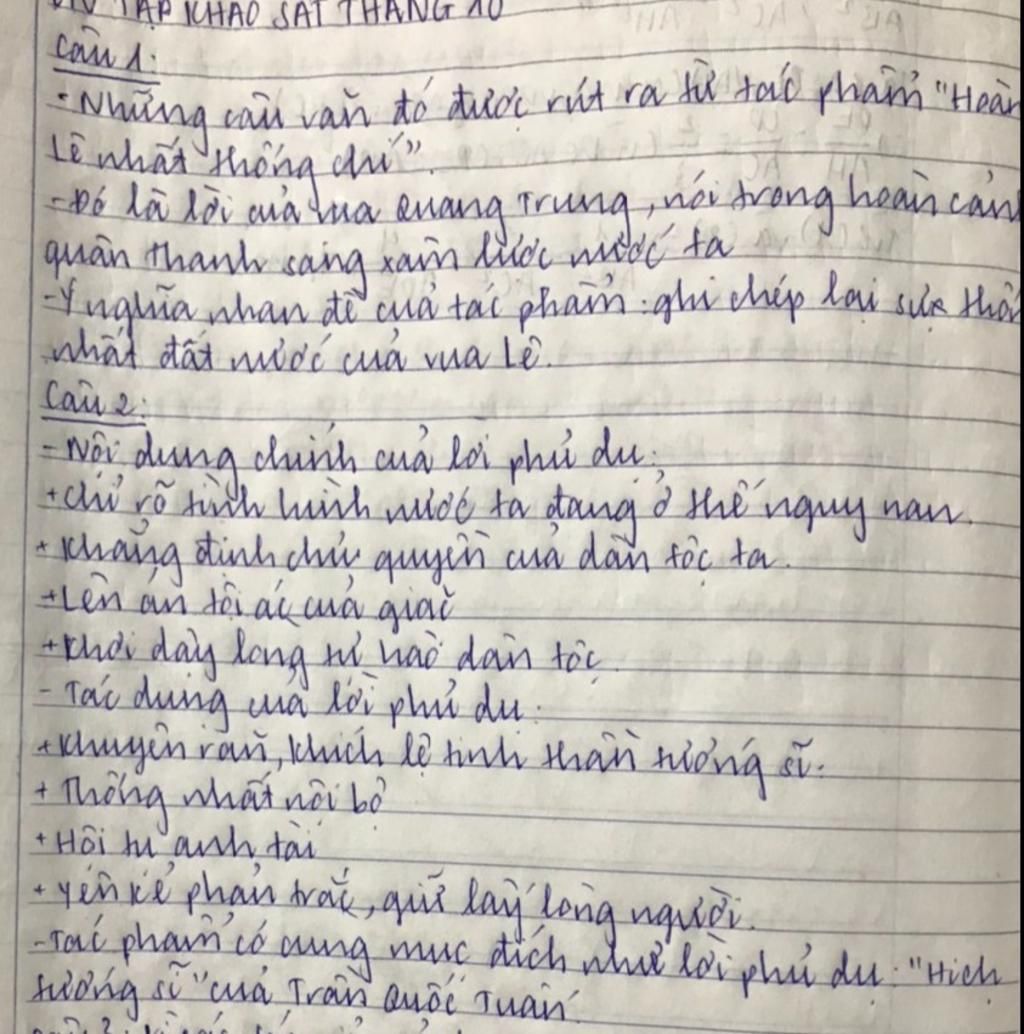 TẬP KHẢO SÁT THÁNG 10
Câu 1:
- Những câu văn đó được rút ra từ tác phẩm "Hoàn
Lê nhất thống chí".
- Đó là lời của vua Quang Trung, nói trong hoàn cản
quân thanh sang xâm lược nước ta
- Ý nghĩa nhan đề của tác phẩm: ghi chép lại sực thố
nhất đất nước của vua Lê.
Câu 2:
- Nội dung chính của lời phủ dụ:
+ Chỉ rõ tình hình nước ta đang ở thế nguy nan.
+ Khẳng định chủ quyền của dân tộc ta.
+ Lên án tội ác của giặc
+ Khơi dậy lòng tự hào dân tộc.
- Tác dụng của lời phủ dụ:
+ Khuyên răn, khích lệ tinh thần tướng sĩ.
+ Thống nhất nội bộ
+ Hội tụ anh tài
+ Yên kẻ phản trắc, giữ lấy lòng người.
- Tác phẩm có cùng mục đích như lời phủ dụ: "Hịch
tướng sĩ" của Trần Quốc Tuấn